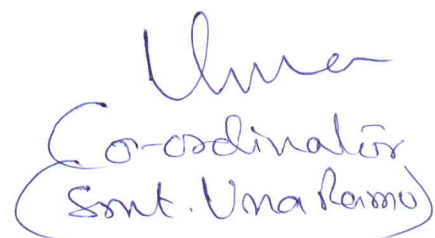 Uma
Co-ordinator
(Smt. Uma Ramu)